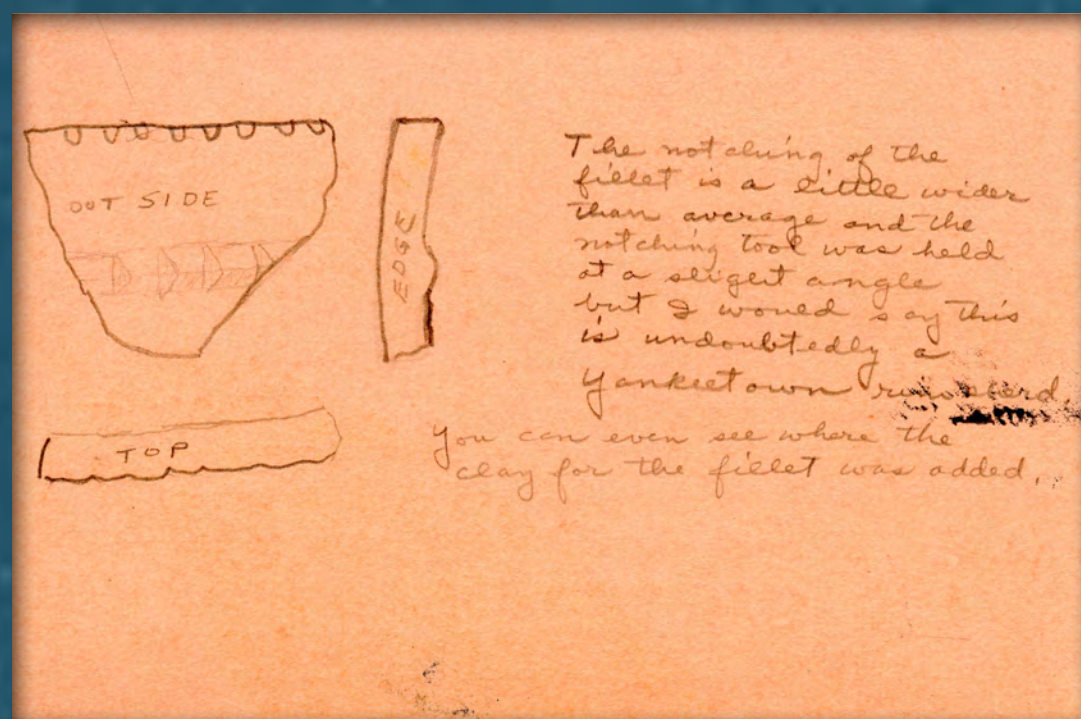 OUT SIDE
EDGE
TOP
The notching of the
fillet is a little wider
than average and the
notching tool was held
at a slight angle
but I would say this
is undoubtedly a
Yankeetown
You can even see where the
clay for the fillet was added.